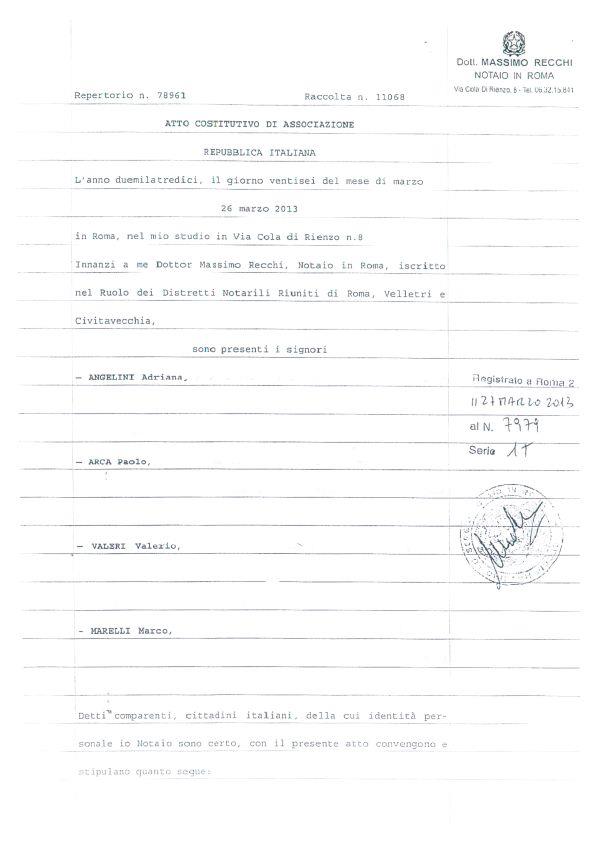 Dott. MASSIMO RECCHI
NOTAIO IN ROMA
Via Cola Di Rienzo, 8 - Tel. 06.32.15.841
Repertorio n. 78961 Raccolta n. 11068
ATTO COSTITUTIVO DI ASSOCIAZIONE
REPUBBLICA ITALIANA
L'anno duemilatredici, il giorno ventisei del mese di marzo
26 marzo 2013
in Roma, nel mio studio in Via Cola di Rienzo n.8
Innanzi a me Dottor Massimo Recchi, Notaio in Roma, iscritto
nel Ruolo dei Distretti Notarili Riuniti di Roma, Velletri e
Civitavecchia,
sono presenti i signori
— ANGELINI Adriana,
Registrato a Roma 2
il 27 MARZO 2013
al N. 7979
Serie 1T
— ARCA Paolo,
— VALERI Valerio,
- MARELLI Marco,
Detti comparenti, cittadini italiani, della cui identità per-
sonale io Notaio sono certo, con il presente atto convengono e
stipulano quanto segue: